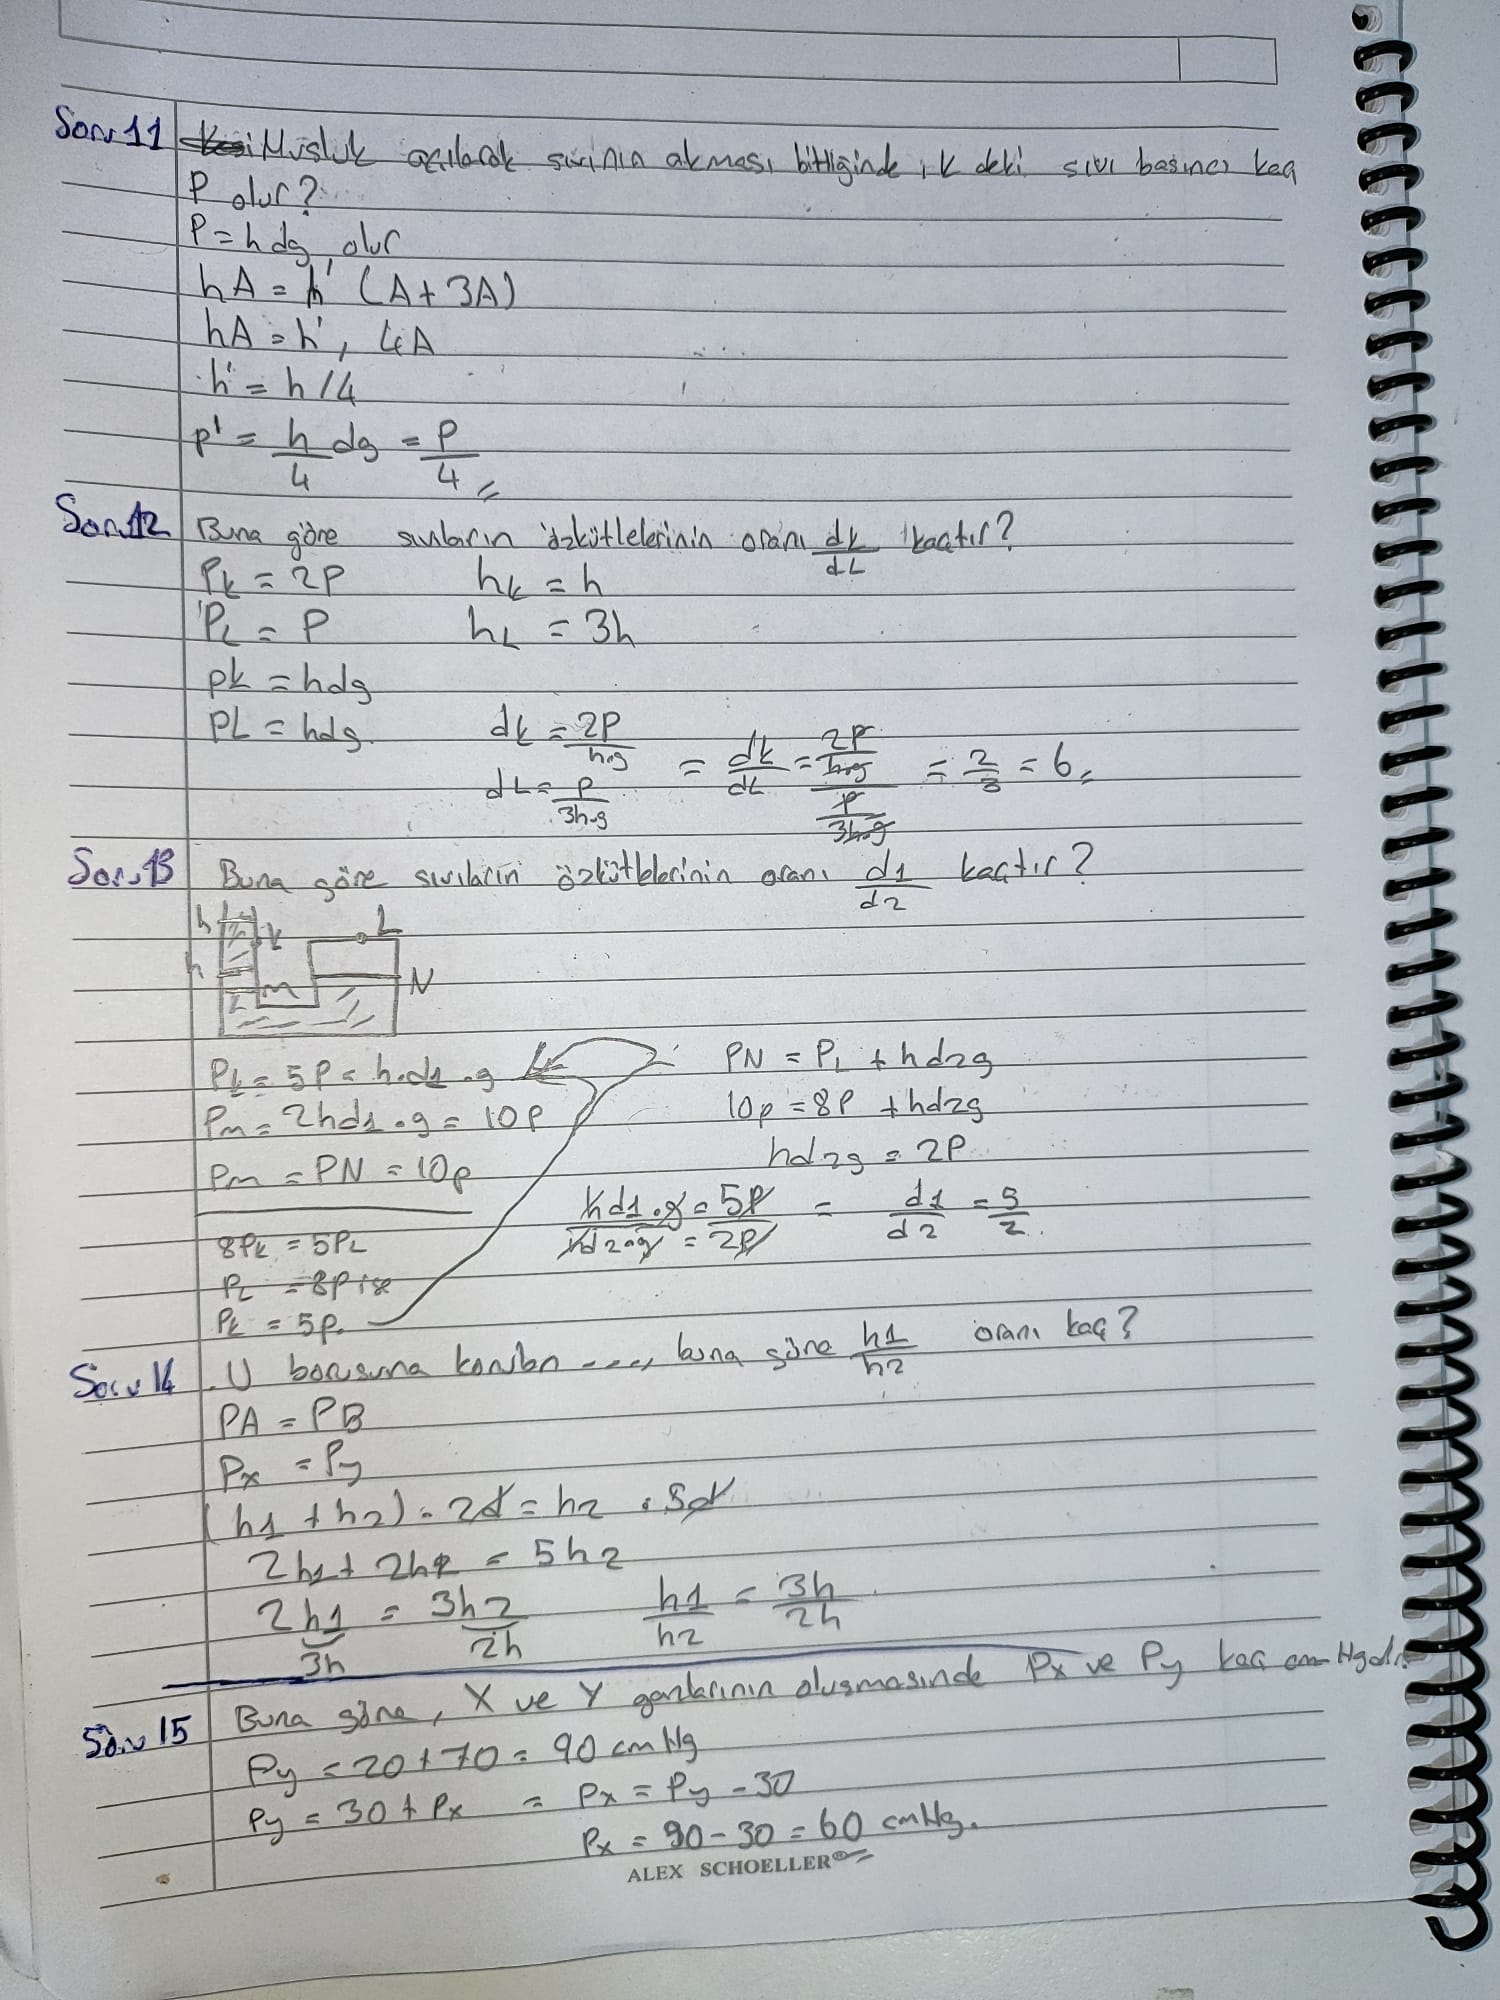 Soru 11 Musluk açılarak sıvının akması bittiğinde, K deki sıvı basıncı kaç
P olur?
P = hdg olur
hA = h' (A + 3A)
hA = h', 4A
h' = h/4
p' = h/4 dg = P/4
Soru 12 Buna göre sıvıların özkütlelerinin oranı dk/dL kaçtır?
Pk = 2P hk = h
PL = P hL = 3h
pk = hdg
PL = hdg.
dk = 2P/h.g
dL = P/3h.g
= dk/dL = 2P/h.g / P/3h.g = 2/3 = 6
Soru 13 Buna göre sıvıların özkütlelerinin oranı d1/d2 kaçtır?
h K L
h
m N
Pk = 5P = h.d1.g
Pm = 2hd1.g = 10P
Pm = PN = 10p
8Pk = 5PL
PL = 8P ise
Pk = 5p.
PN = PL + hd2g
10p = 8P + hd2g
hd2g = 2P
hd1.g = 5P / hd2.g = 2P = d1/d2 = 5/2.
Soru 14 U borusuna konulan ...., buna göre h1/h2 oranı kaç?
PA = PB
Px = Py
(h1 + h2). 2d = h2 . 5d
2h1 + 2h2 = 5h2
2h1 = 3h2
3h 2h
h1/h2 = 3h/2h
Soru 15 Buna göre, X ve Y gazlarının oluşmasında Px ve Py kaç cm Hgdır.
Py = 20 + 70 = 90 cm Hg
Py = 30 + Px = Px = Py - 30
Px = 90 - 30 = 60 cmHg.
ALEX SCHOELLER®